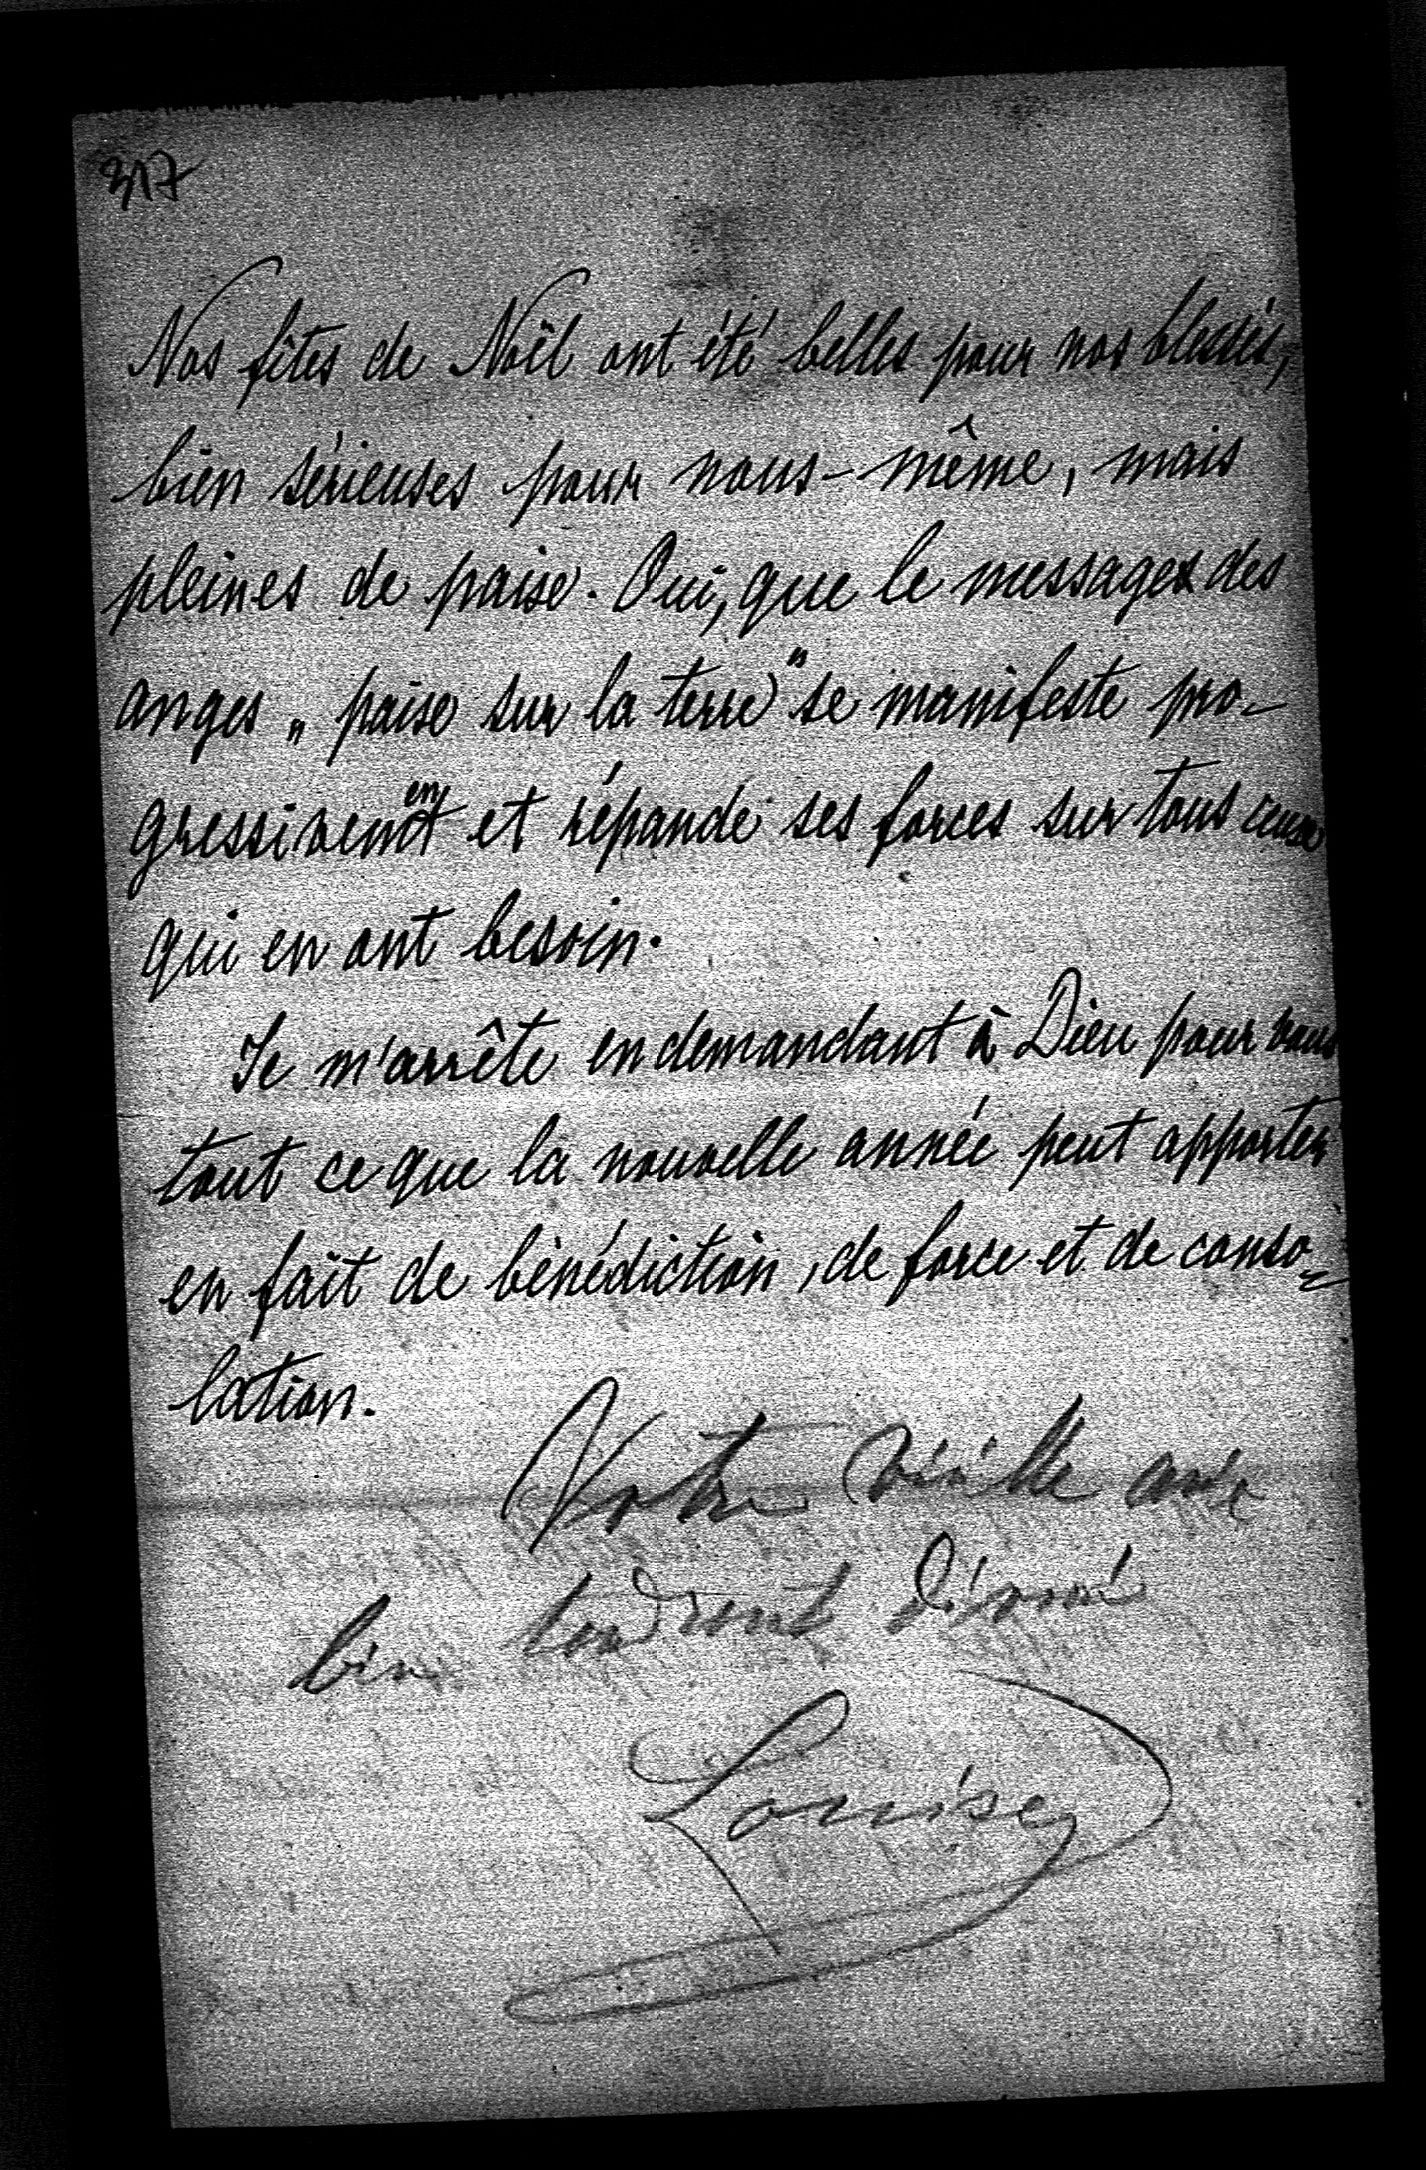 317
Nos fêtes de Noël ont été belles pour nos blessés,
bien sérieuses pour nous-même, mais
pleines de paix. Oui, que le message des
anges „paix sur la terre" se manifeste pro-
gressivement et répande ses forces sur tous ceux
qui en ont besoin.
Je m'arrête en demandant à Dieu pour vous
tout ce que la nouvelle année peut apporter
en fait de bénédiction, de force et de conso-
lation.
Votre vieille amie
bien tendrement dévouée
Louise